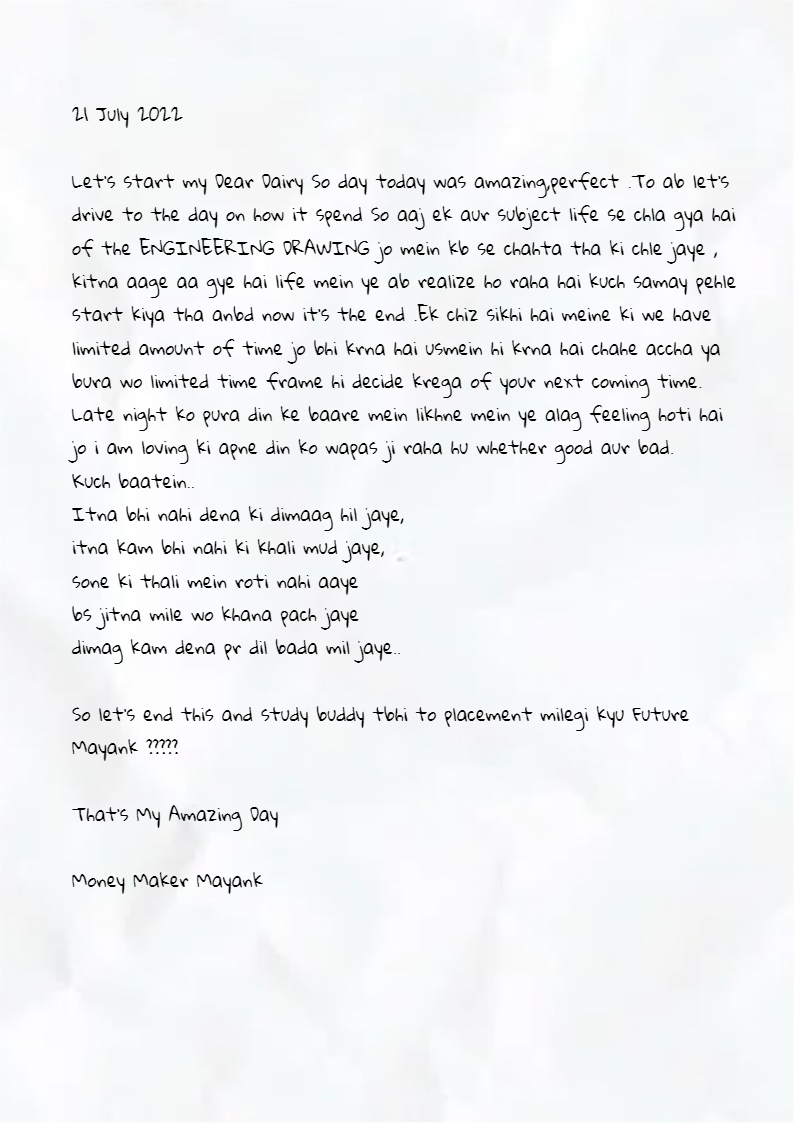 21 July 2022
Let's start my Dear Dairy So day today was amazing,perfect .To ab let's
drive to the day on how it spend So aaj ek aur subject life se chla gya hai
of the ENGINEERING DRAWING jo mein kb se chahta tha ki chle jaye ,
kitna aage aa gye hai life mein ye ab realize ho raha hai kuch samay pehle
start kiya tha anbd now it's the end .Ek chiz sikhi hai meine ki we have
limited amount of time jo bhi krna hai usmein hi krna hai chahe accha ya
bura wo limited time frame hi decide krega of your next coming time.
Late night ko pura din ke baare mein likhne mein ye alag feeling hoti hai
jo i am loving ki apne din ko wapas ji raha hu whether good aur bad.
Kuch baatein..
Itna bhi nahi dena ki dimaag hil jaye,
itna kam bhi nahi ki khali mud jaye,
sone ki thali mein roti nahi aaye
bs jitna mile wo khana pach jaye
dimag kam dena pr dil bada mil jaye..
So let's end this and study buddy tbhi to placement milegi kyu Future
Mayank ?????
That's My Amazing Day
Money Maker Mayank